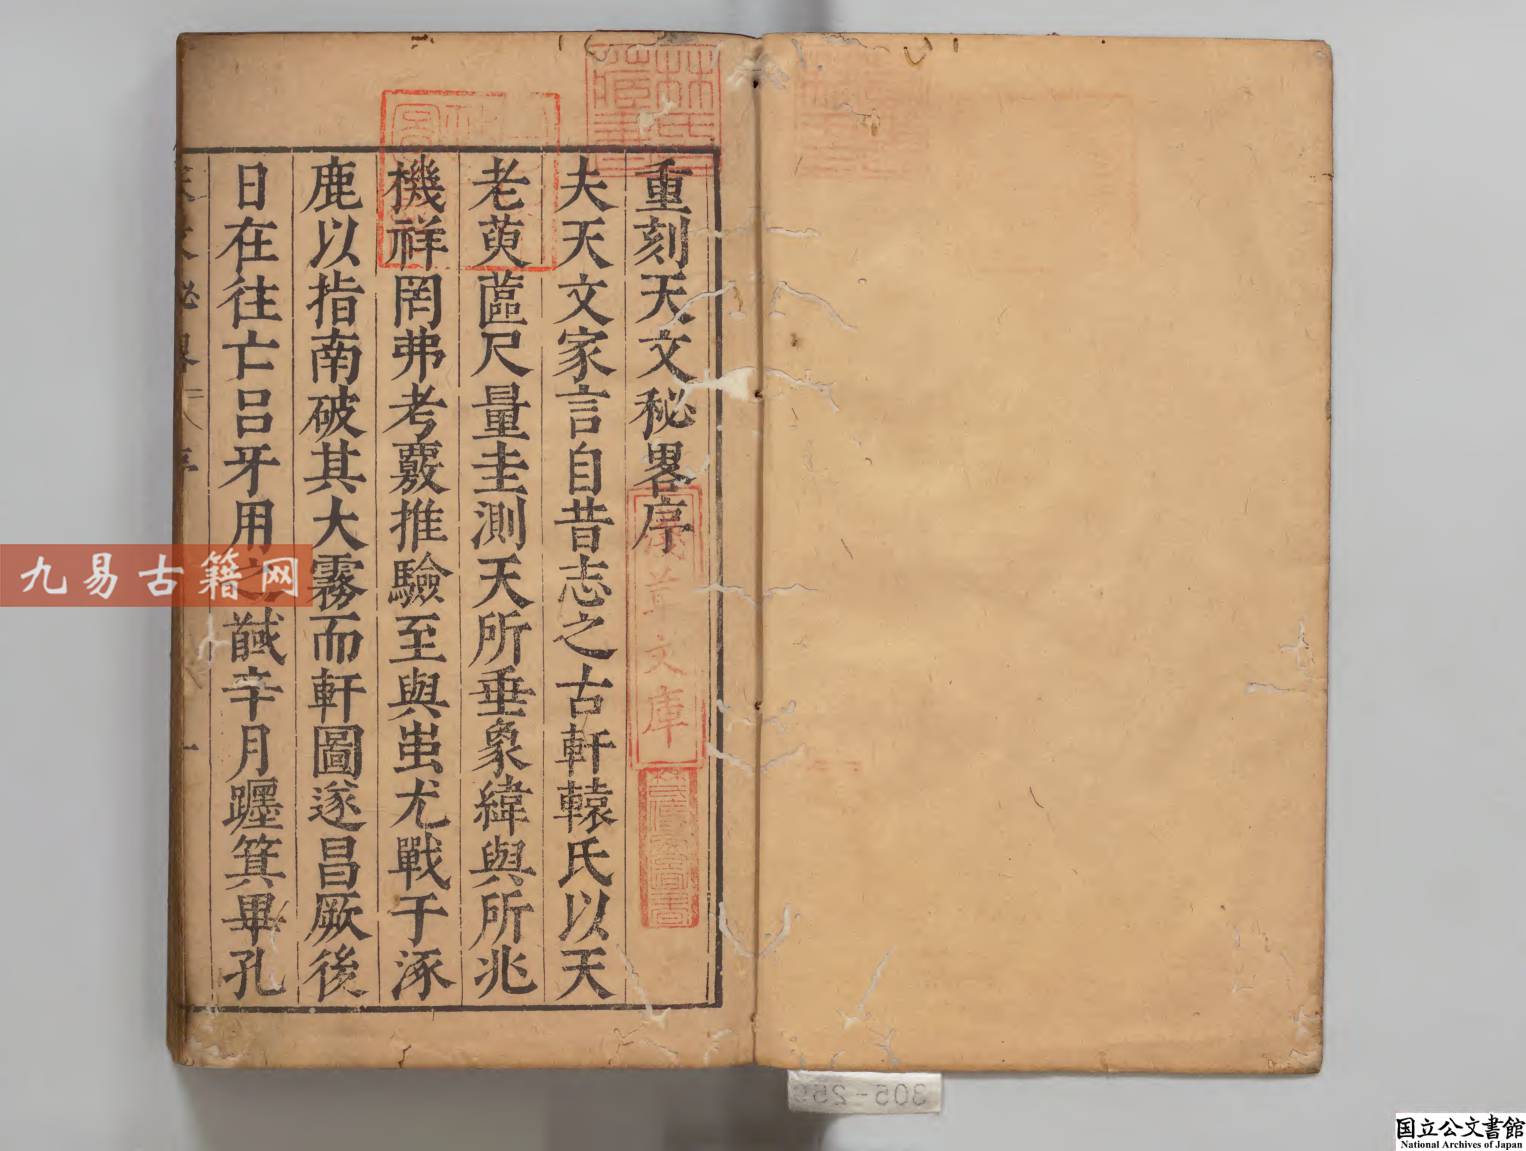 重刻天文秘畧序
夫天文家言自昔志之古軒轅氏以天
老萸蓲尺量圭測天所垂象緯與所兆
機祥罔弗考覈推驗至與蚩尤戰于涿
鹿以指南破其大霧而軒圖遂昌厥後
日在往亡呂牙用之馘辛月躔箕畢孔
林氏藏書
文庫
九易古籍网
305-25
国立公文書館
National Archives of Japan